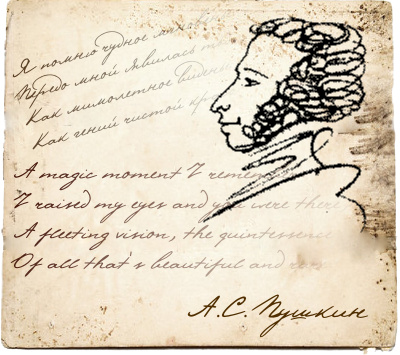 Я помню чудное мгновенье
Передо мной явилась т
Как мимолетное виден
Как гений чистой кр
A magic moment I remem
I raised my eyes and you were there
A fleeting vision, the quintessence
Of all that's beautiful and
А.С. Пушкин